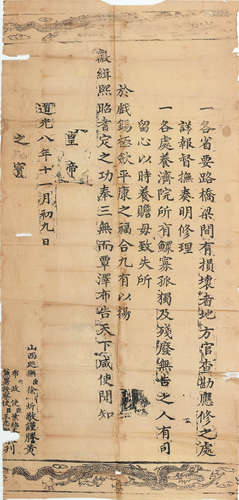 一各省要路橋梁間有損壞者地方官查勘應修之處
詳報督撫奏明修理
一各處養濟院所有鰥寡孤獨及殘廢無告之人有司
留心以時養贍毋致失所
於戲錫極歛平康之福合九有以揚
徽緝熙昭耆定之功奉三無而覃澤布告天下咸使聞知
皇帝
道光八年十一月初九日
之寶
山西巡撫臣徐炘敬謹謄黃
布政使臣
按察使臣
刊